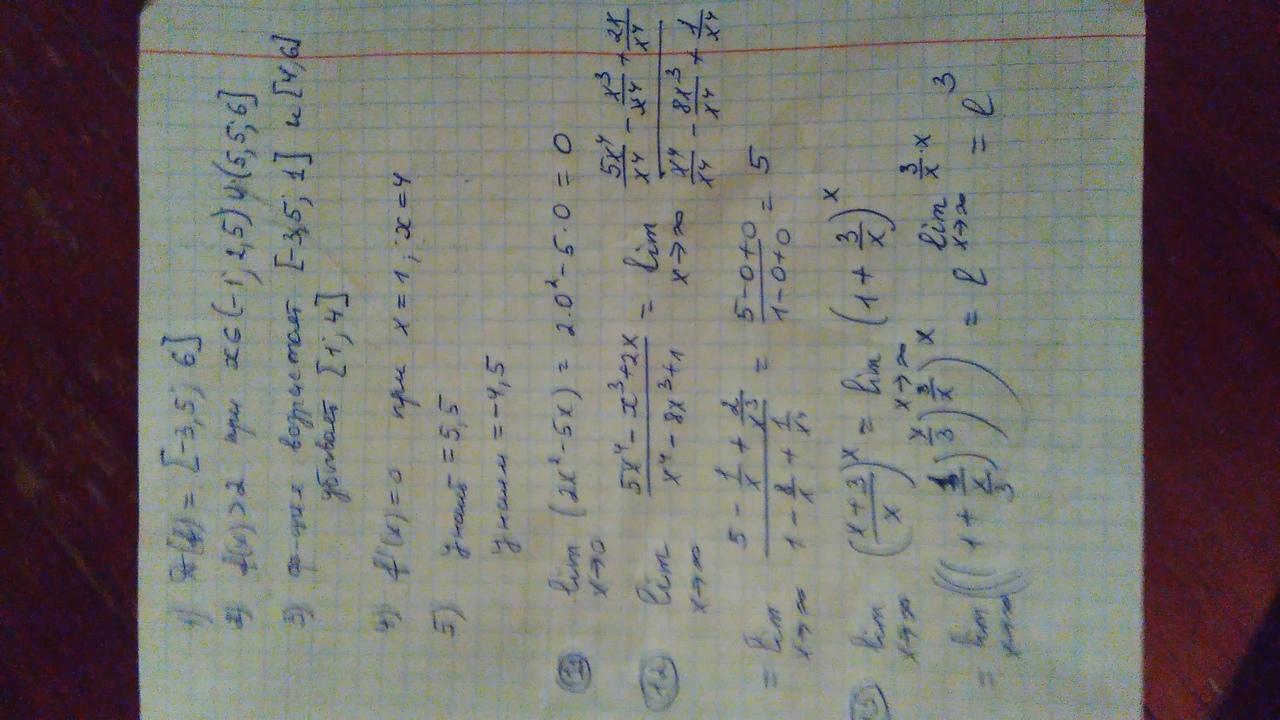 1) D(f) = [-3,5; 6]
2) f(x)>2 при x∈(-1; 2,5)u(5,5; 6]
3) ф-ция возрастает [-3,5; 1] и [4; 6]
убывает [1; 4]
4) f'(x)=0 при x=1; x=4
5) yнаиб = 5,5
yнаим = -4,5
lim x→0 (2x²-5x) = 2·0²-5·0 = 0
12 lim x→∞ (5x⁴-x³+2x)/(x⁴-8x³+1) = lim x→∞ (5x⁴/x⁴ - x³/x⁴ + 2x/x⁴)/(x⁴/x⁴ - 8x³/x⁴ + 1/x⁴)
= lim x→∞ (5 - 1/x + 2/x³)/(1 - 8/x + 1/x⁴) = (5-0+0)/(1-0+0) = 5
lim x→∞ ((x+3)/x)^x = lim x→∞ (1 + 3/x)^x
= lim x→∞ (((1 + 1/(x/3))^(x/3))^(3/x))^x = e^(lim x→∞ 3/x·x) = e³